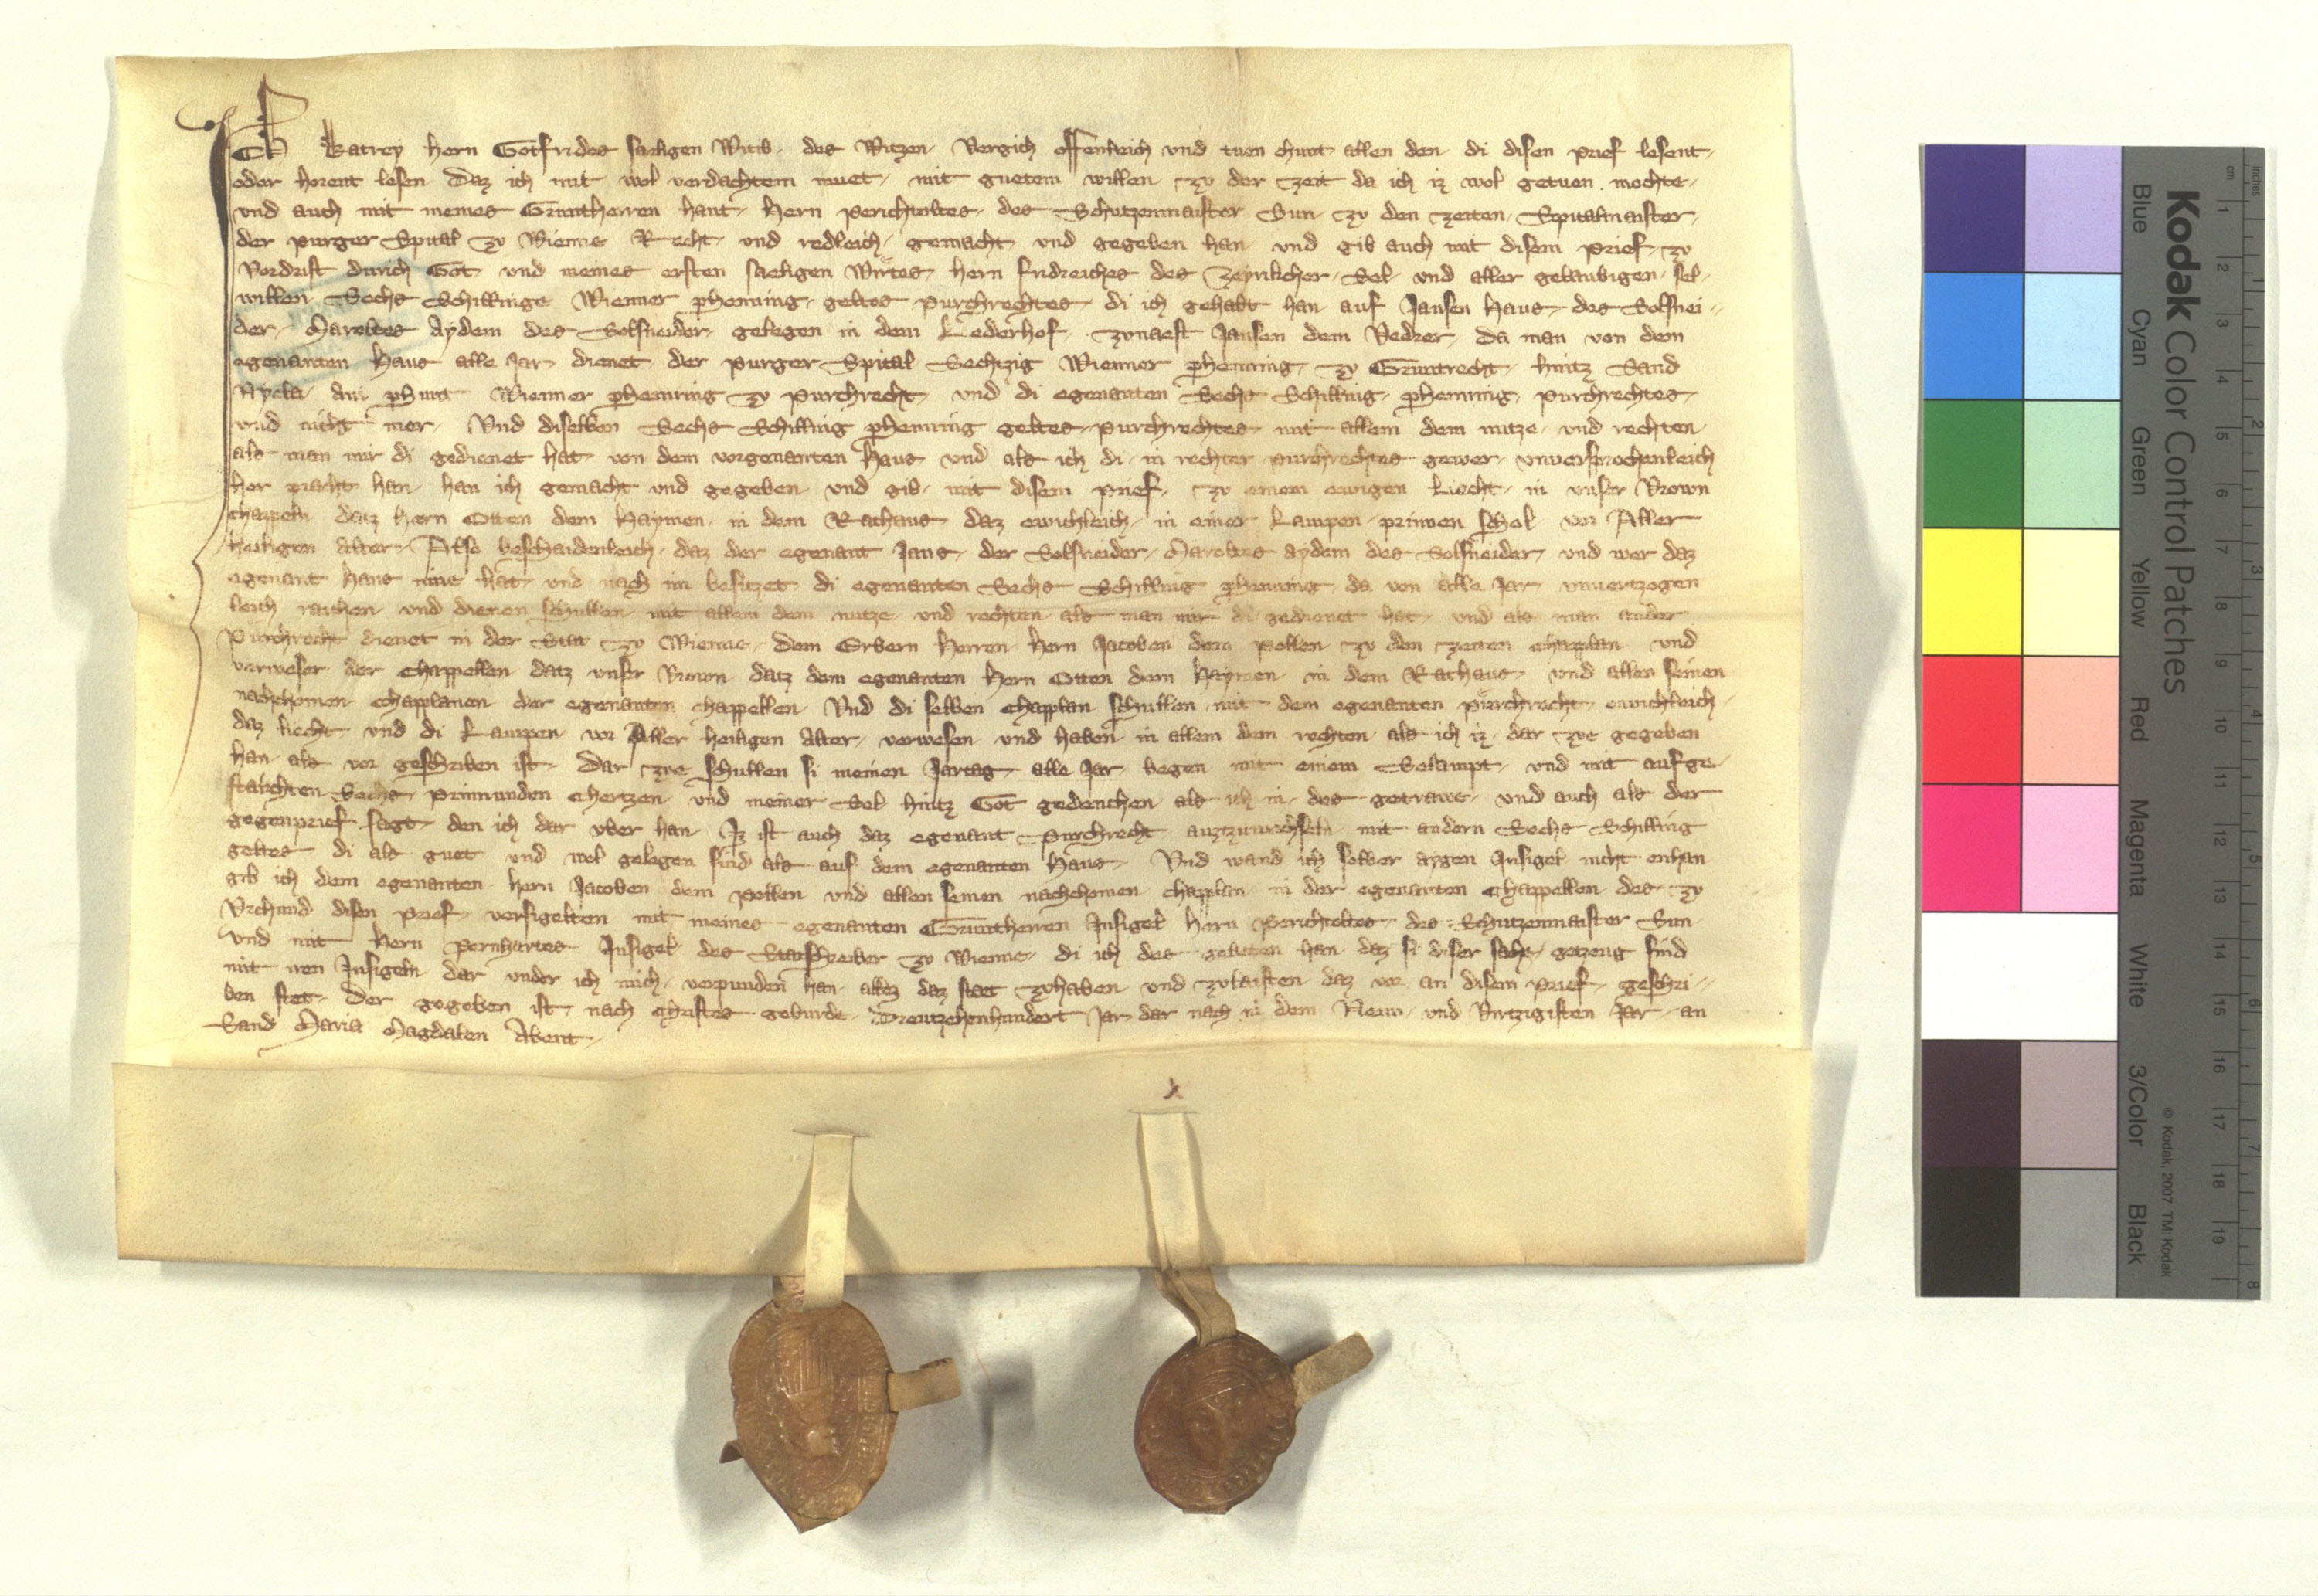 Ich Katrey hern Gotfrides saeligen Witib des Witzen Vergich offenleich vnd tuen chunt allen den di disen prief lesent
oder horent lesen Daz ich mit wol verdachtem muet mit guetem willen zv der zeit da ich iz wol getuen mochte
vnd auch mit meines Gruntherren hant hern Perichtoltes des Schutzenmaister Sun zv den zeiten Spitalmaister
der purger Spital zv Wienne Recht vnd redleich gemacht vnd gegeben han vnd gib auch mit disem prief zv
Vordrist durich Got vnd meines ersten saeligen Wirtes hern Fridreiches des Sel vnd aller gelaubigen sel
willen Sechs Schillinge Wienner phenning geltes purchrechtes di ich gehabt han auf Jansen Haus des Solsnei
der Maroltes Aydem des Solsneider gelegen in dem Lederhof zvnaest Jansen dem da man von dem
egenanten Haus alle Jar dienet der purger Spital Sechtzig Wienner phenning zv Gruntrecht hintz Sand
ain phunt Wienner phenning zv purchrecht vnd di egenanten Sechs Schilling phenning purchrechtes
vnd nicht mer Vnd diselben Sechs Schilling phenning geltes purchrechtes mit allem dem nutze vnd rechten
als man mir di gedienet hat von dem vorgenanten Haus vnd als ich di in rechter purchrechtes gewer vnuersprochenleich
her pracht han han ich gemacht vnd gegeben vnd gib mit disem prief zv einem ewigen Liecht in vnser Vrown
chappeln datz hern Otten dem Haymen in dem Rathaus daz ewichleich in einer Lampen prinnen schol vor Aller
heiligen Alter Also beschaidenleich daz der egenant Jans der Solsneider Maroltes aydem des Solsneider vnd wer daz
egenant haus inne hat vnd nach im besitzet di egenanten Sechs Schilling phenning da von alle Jar vnuertzogen
leich raichen vnd dienen schullen mit allem dem nutze vnd rechten als man mir di gedienet hat vnd als man ander
Purchrecht dienet in der Stat zv Wienne dem Erbern Herren hern Jacoben dem Pollen zv den zeiten chapplan vnd
verweser der Chappellen datz vnser Vrown datz dem egenanten Hern Otten dem Haymen in dem Rathaus vnd allen seinen
nachchomen chapplanen der egenanten chappellen Vnd di selben chapplan schullen mit dem egenanten purchrecht ewichleich
daz liecht vnd di Lampen vor Aller heiligen Alter verwesen vnd haben in allem dem rechten als ich iz dar zve gegeben
han als vor geschriben ist Dar zve schullen si meinen Jartag alle Jar begen mit einem Selampt vnd mit aufge
stakchten Sechs prinnunden chertzen vnd meiner Sel hintz Got gedenchen als ich in des getrawe vnd auch als der
gegenprief sagt den ich dar vber han Iz ist auch daz egenant purchrecht auztzuwechseln mit andern Sechs Schilling
geltes di als guet vnd wol gelegen sind als auf dem egenanten Haus Vnd wand ich selber aygen Insigel nicht enhan
gib ich dem egenanten hern Jacoben dem Pollen vnd allen seinen nachchomen chapplan in der egenanten Chappellen des zv
Vrchund disen prief versigelten mit meines egenanten Gruntherren Insigel hern Perichtoltes des Schutzenmaister Sun
vnd mit hern Pernhartes Insigel des Statschreiber zv Wienne di ich des gebeten han daz si diser sache getzeug sind
mit iren Insigeln dar vnder ich mich verpunden han allez daz staet zvhaben vnd zvlaisten daz vor an disem prief geschri
ben stet Der gegeben ist nach Christes geburde Dreutzehenhundert Jar dar nach in dem Neun vnd Virtzigisten Jar an
Sand Maria Magdalen Abent
x
Kodak Color Control Patches
Blue Cyan Green Yellow Red Magenta White 3/Color Black
© Kodak, 2007 TM: Kodak
cm 1 2 3 4 5 6 7 8 9 10 11 12 13 14 15 16 17 18 19
inches 1 2 3 4 5 6 7 8